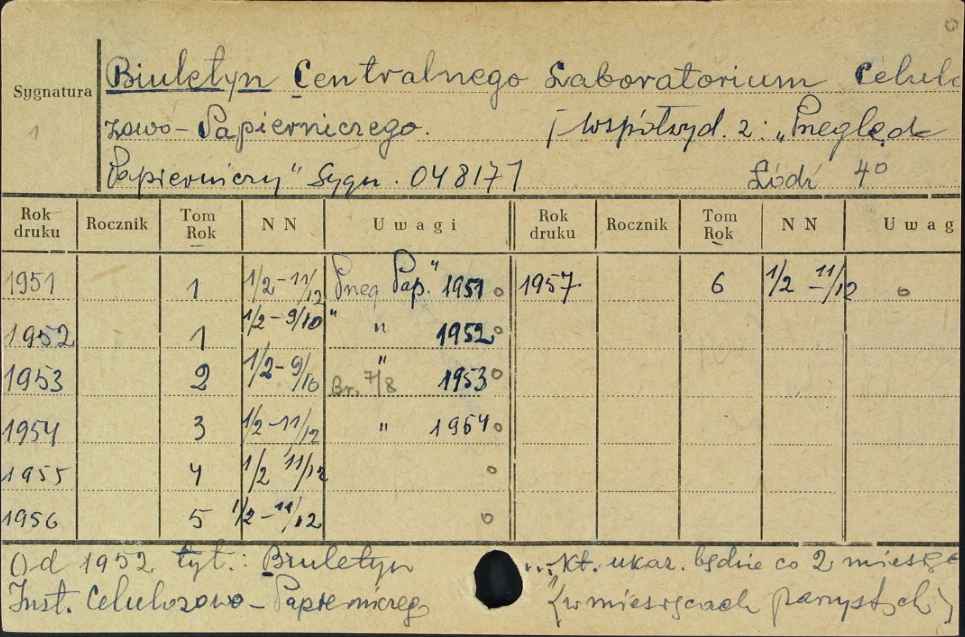 Sygnatura
1
Biuletyn Centralnego Laboratorium Celulo
zowo-Papierniczego. / współwyd. z: „Przegląd
Papierniczy" Sygn. 048171 Łódź 4°
Rok druku Rocznik Tom Rok NN Uwagi Rok druku Rocznik Tom Rok NN Uwag
1951 1 1/2-11/12 „Przeg. Pap." 1951 1957 6 1/2-11/12
1952 1 1/2-9/10 " " 1952
1953 2 1/2-9/10 " Br. 7/8 1953
1954 3 1/2-11/12 " 1954
1955 4 1/2 11/12
1956 5 1/2-11/12
Od 1952 tyt.: Biuletyn ... kt. ukaz. będzie co 2 miesią
Inst. Celulozowo-Papierniczeg (w miesiącach parzystych)